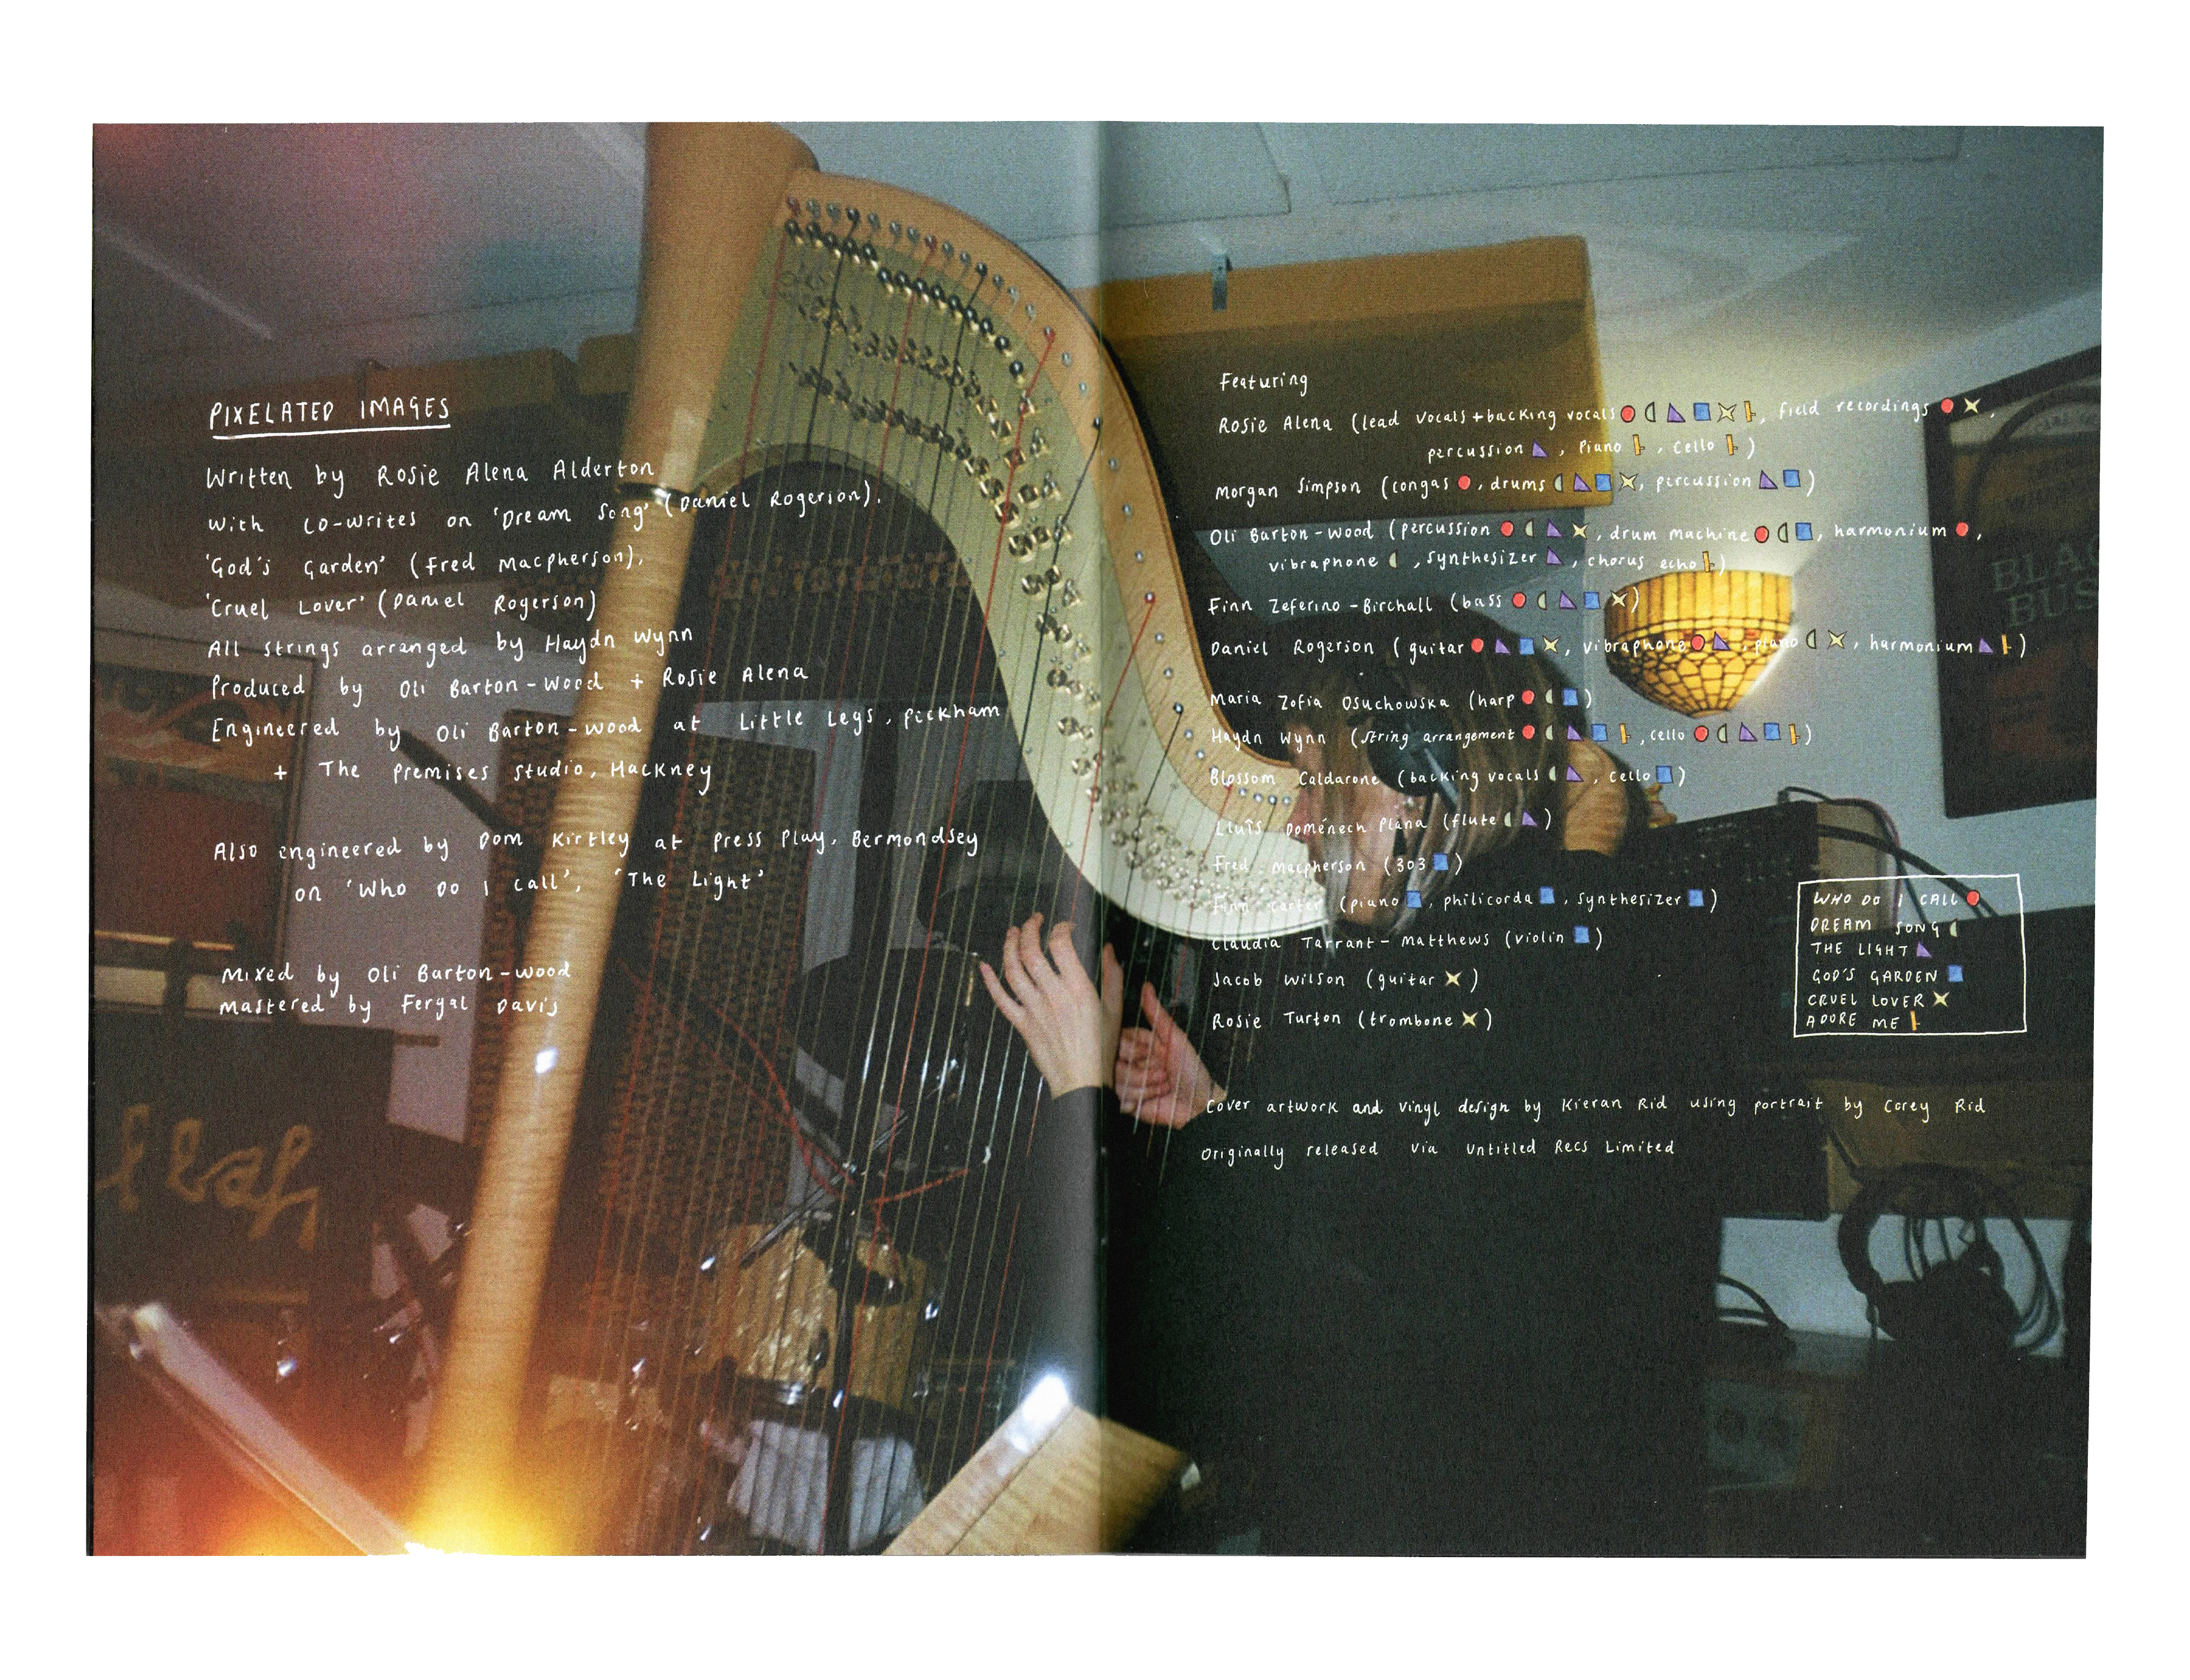 PIXELATED IMAGES
Written by Rosie Alena Alderton
with co-writes on 'Dream Song' (Daniel Rogerson),
'God's Garden' (Fred Macpherson),
'Cruel Lover' (Daniel Rogerson)
All strings arranged by Haydn Wynn
Produced by Oli Barton-Wood + Rosie Alena
Engineered by Oli Barton-Wood at Little Legs, Peckham
+ The Premises Studio, Hackney
Also engineered by Dom Kirtley at Press Play, Bermondsey
on 'Who Do I Call', 'The Light'
Mixed by Oli Barton-Wood
Mastered by Fergal Davis
Featuring
Rosie Alena (lead vocals + backing vocals, field recordings,
percussion, Piano, Cello)
Morgan Simpson (congas, drums, percussion)
Oli Barton-Wood (percussion, drum machine, harmonium,
vibraphone, synthesizer, chorus echo)
Finn Zeferino-Birchall (bass)
Daniel Rogerson (guitar, vibraphone, piano, harmonium)
Maria Zofia Osuchowska (harp)
Haydn Wynn (String arrangement, cello)
Blossom Caldarone (backing vocals, cello)
Lluís Domènech Plana (flute)
Fred Macpherson (303)
Finn Carter (piano, philicorda, synthesizer)
Claudia Tarrant-Matthews (violin)
Jacob Wilson (guitar)
Rosie Turton (trombone)
WHO DO I CALL
DREAM SONG
THE LIGHT
GOD'S GARDEN
CRUEL LOVER
ADORE ME
Cover artwork and vinyl design by Kieran Rid using portrait by Corey Rid
Originally released via Untitled Recs Limited